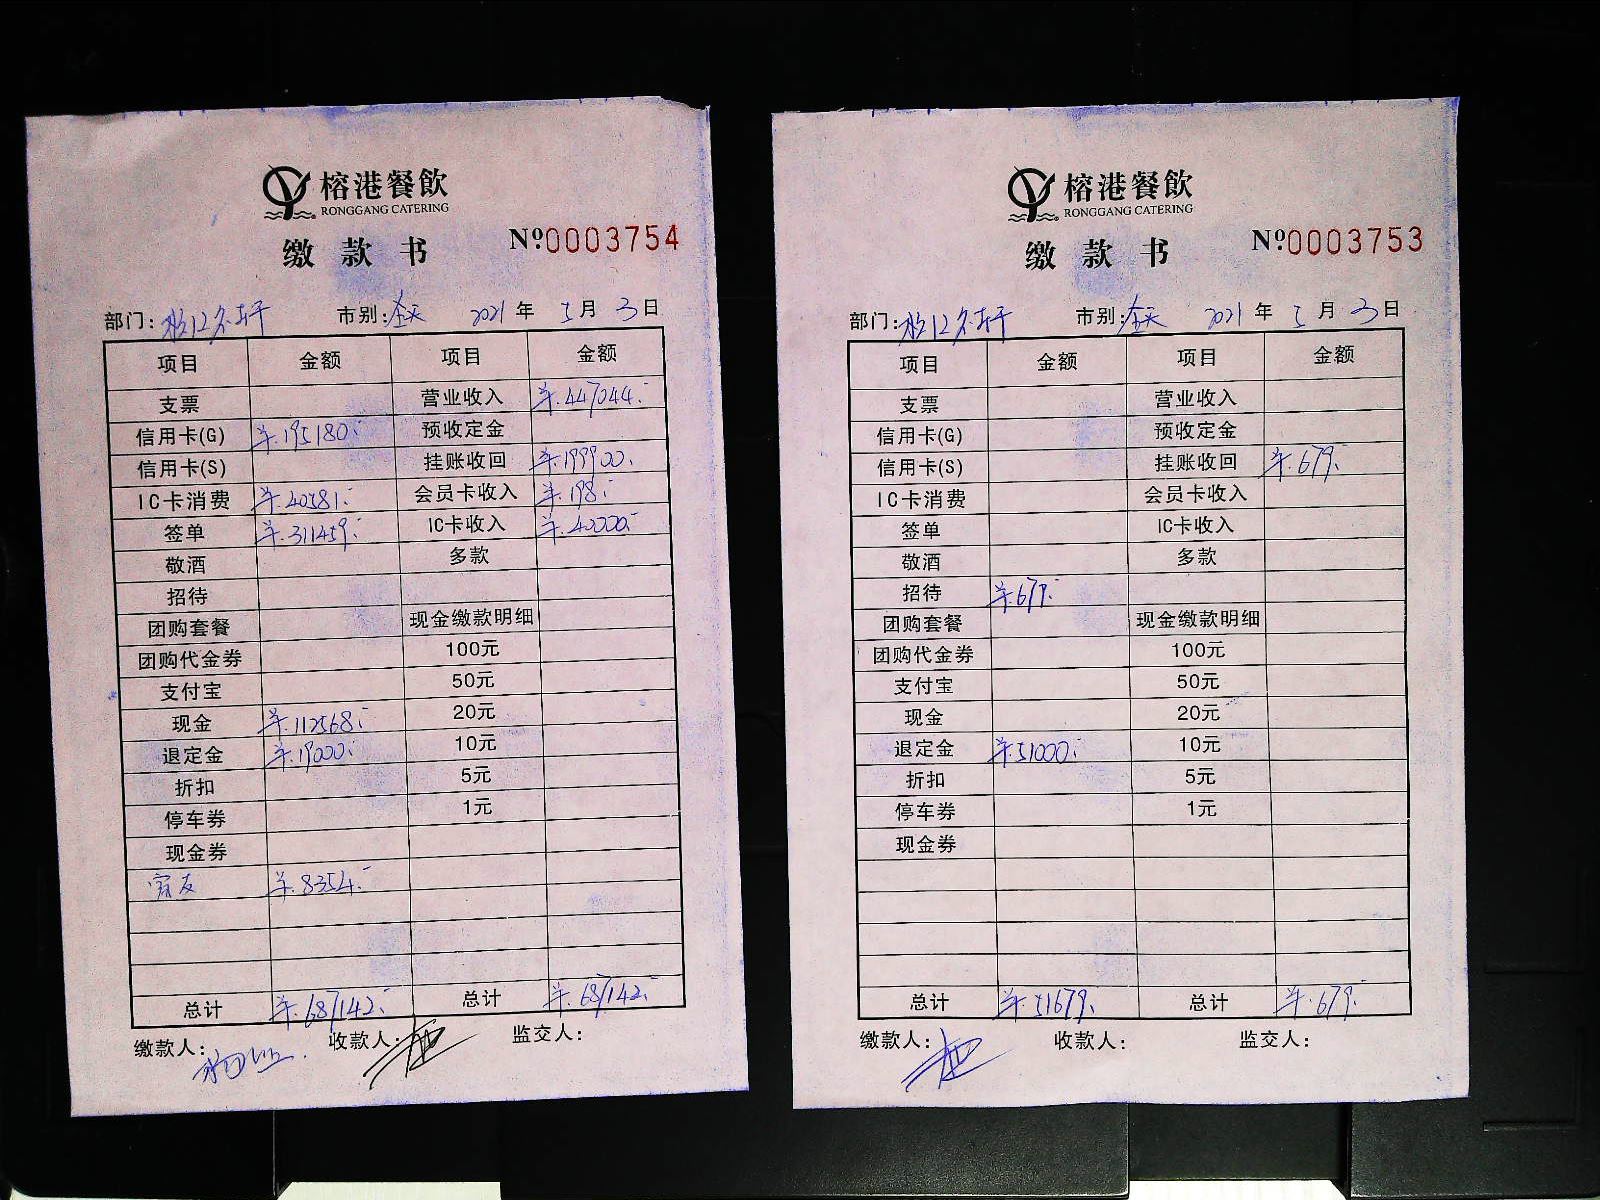 榕港餐飲
RONGGANG CATERING
缴款书
Nº0003754
部门: 市别:全天 2021年5月3日
项目 金额 项目 金额
支票 营业收入 ¥.447044.-
信用卡(G) ¥.195180.- 预收定金
信用卡(S) 挂账收回 ¥.199900.-
IC卡消费 ¥.40581.- 会员卡收入 ¥.198.-
签单 ¥.311459.- IC卡收入 ¥.40000.-
敬酒 多款
招待
团购套餐 现金缴款明细
团购代金券 100元
支付宝 50元
现金 ¥.112568.- 20元
退定金 ¥.19000.- 10元
折扣 5元
停车券 1元
现金券
¥.8354.-
总计 ¥.687142.- 总计 ¥.687142.-
缴款人: 收款人: 监交人:
榕港餐飲
RONGGANG CATERING
缴款书
Nº0003753
部门: 市别:全天 2021年5月3日
项目 金额 项目 金额
支票 营业收入
信用卡(G) 预收定金
信用卡(S) 挂账收回 ¥.679.-
IC卡消费 会员卡收入
签单 IC卡收入
敬酒 多款
招待 ¥.679.-
团购套餐 现金缴款明细
团购代金券 100元
支付宝 50元
现金 20元
退定金 ¥.51000.- 10元
折扣 5元
停车券 1元
现金券
总计 ¥.51679.- 总计 ¥.679.-
缴款人: 收款人: 监交人: